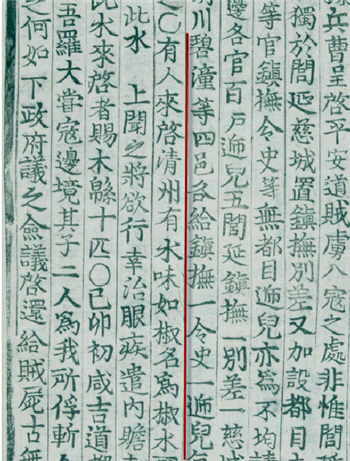 兵曹呈啓平安道賊虜入寇之處非惟閭延
獨於閭延慈城置鎭撫別差又加設都目
等官鎭撫令史等無都目遞兒亦爲不均請
邊各官百戶遞兒五閭延鎭撫一別差一慈城
川碧潼等四邑各給鎭撫一令史一遞兒
〇有人來啓淸州有水味如椒名爲椒水
此水 上聞之將欲行幸治眼疾遣內贍
此水來啓者賜木緜十匹〇己卯初咸吉道都
吾羅大嘗寇邊境其子二人爲我所俘斬
之何如 下政府議之僉議啓還給賊屍古無